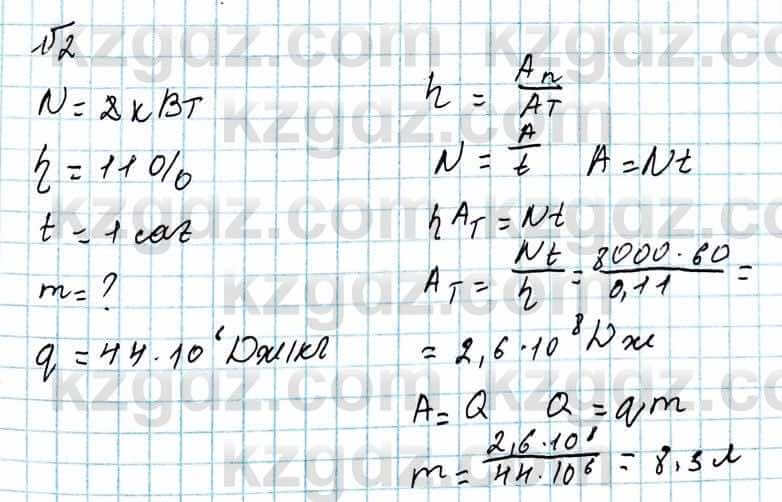 √2
N = 8 кВт
η = 11 %
t = 1 сағ
m = ?
q = 44 · 10⁶ Дж/кг
η = Aп / AT
N = A / t   A = Nt
η AT = Nt
AT = Nt / η = 8000 · 60 / 0,11 =
= 2,6 · 10⁸ Дж
A = Q   Q = qm
m = 2,6 · 10⁸ / 44 · 10⁶ = 8,3 л
kzgdz.com